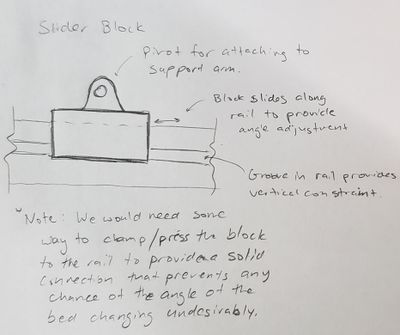 Slider Block
Pivot for attaching to
support arm.
Block slides along
rail to provide
angle adjustment
Groove in rail provides
vertical constraint.
Note: We would need some
way to clamp/press the block
to the rail to provide a solid
connection that prevents any
chance of the angle of the
bed changing undesirably.